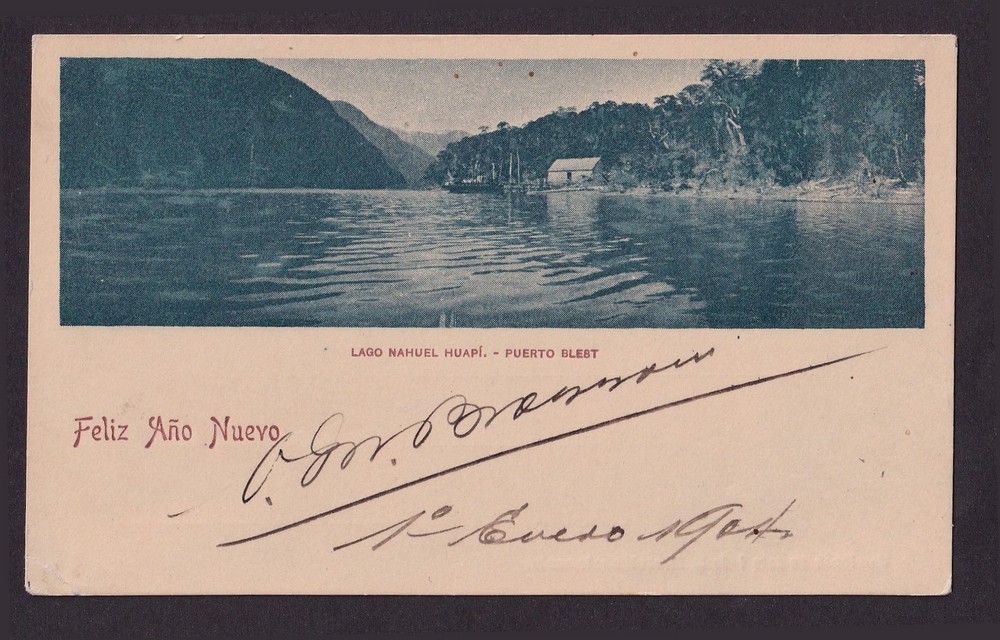 LAGO NAHUEL HUAPÍ. - PUERTO BLEST
Feliz Año Nuevo
1º Enero 1904.